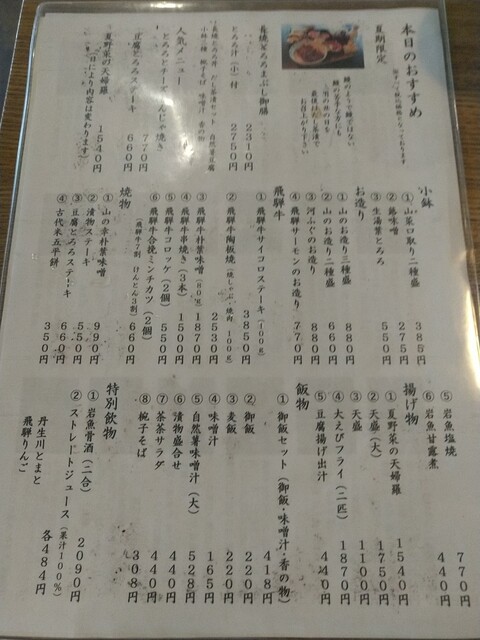 本日のおすすめ
夏期限定
長焼とろろまぶし御膳 2310円
とろろ汁(小)付 2750円
人気メニュー
とろろとチーズもんじゃ焼き 770円
豆腐とろろステーキ 660円
夏野菜の天婦羅 1540円
(日により内容は変わります)
小鉢
① 山菜口取り二種盛 385円
② 蕗味噌 275円
③ 生湯葉とろろ 550円
お造り
① 山のお造り三種盛 880円
② 山のお造り二種盛 660円
③ 河ふぐのお造り 880円
④ 飛騨サーモンのお造り 770円
飛騨牛
① 飛騨牛サイコロステーキ(100g) 3850円
② 飛騨牛陶板焼(焼しゃぶ・焼肉 100g) 2530円
③ 飛騨牛朴葉味噌(80g) 1870円
④ 飛騨牛串焼き(3本) 1500円
⑤ 飛騨牛コロッケ(2個) 550円
⑥ 飛騨牛合挽ミンチカツ(2個) 660円
(飛騨牛7割 けんとん3割)
焼物
① 山の幸朴葉味噌 990円
② 漬物ステーキ 550円
③ 豆腐とろろステーキ 660円
④ 古代米五平餅 350円
⑤ 岩魚塩焼 770円
⑥ 岩魚甘露煮 440円
揚げ物
① 夏野菜の天婦羅 1540円
② 天盛(大) 1750円
③ 天盛 1100円
④ 大えびフライ(二匹) 1870円
⑤ 豆腐揚げ出汁 440円
飯物
① 御飯セット(御飯・味噌汁・香の物) 418円
② 御飯 220円
③ 麦飯 220円
④ 味噌汁 165円
⑤ 自然薯味噌汁(大) 528円
⑥ 漬物盛合せ 440円
⑦ 茶茶サラダ 440円
⑧ 椀子そば 308円
特別飲物
① 岩魚骨酒(二合) 2090円
② ストレートジュース(果汁100%)
丹生川とまと
飛騨りんご 各484円